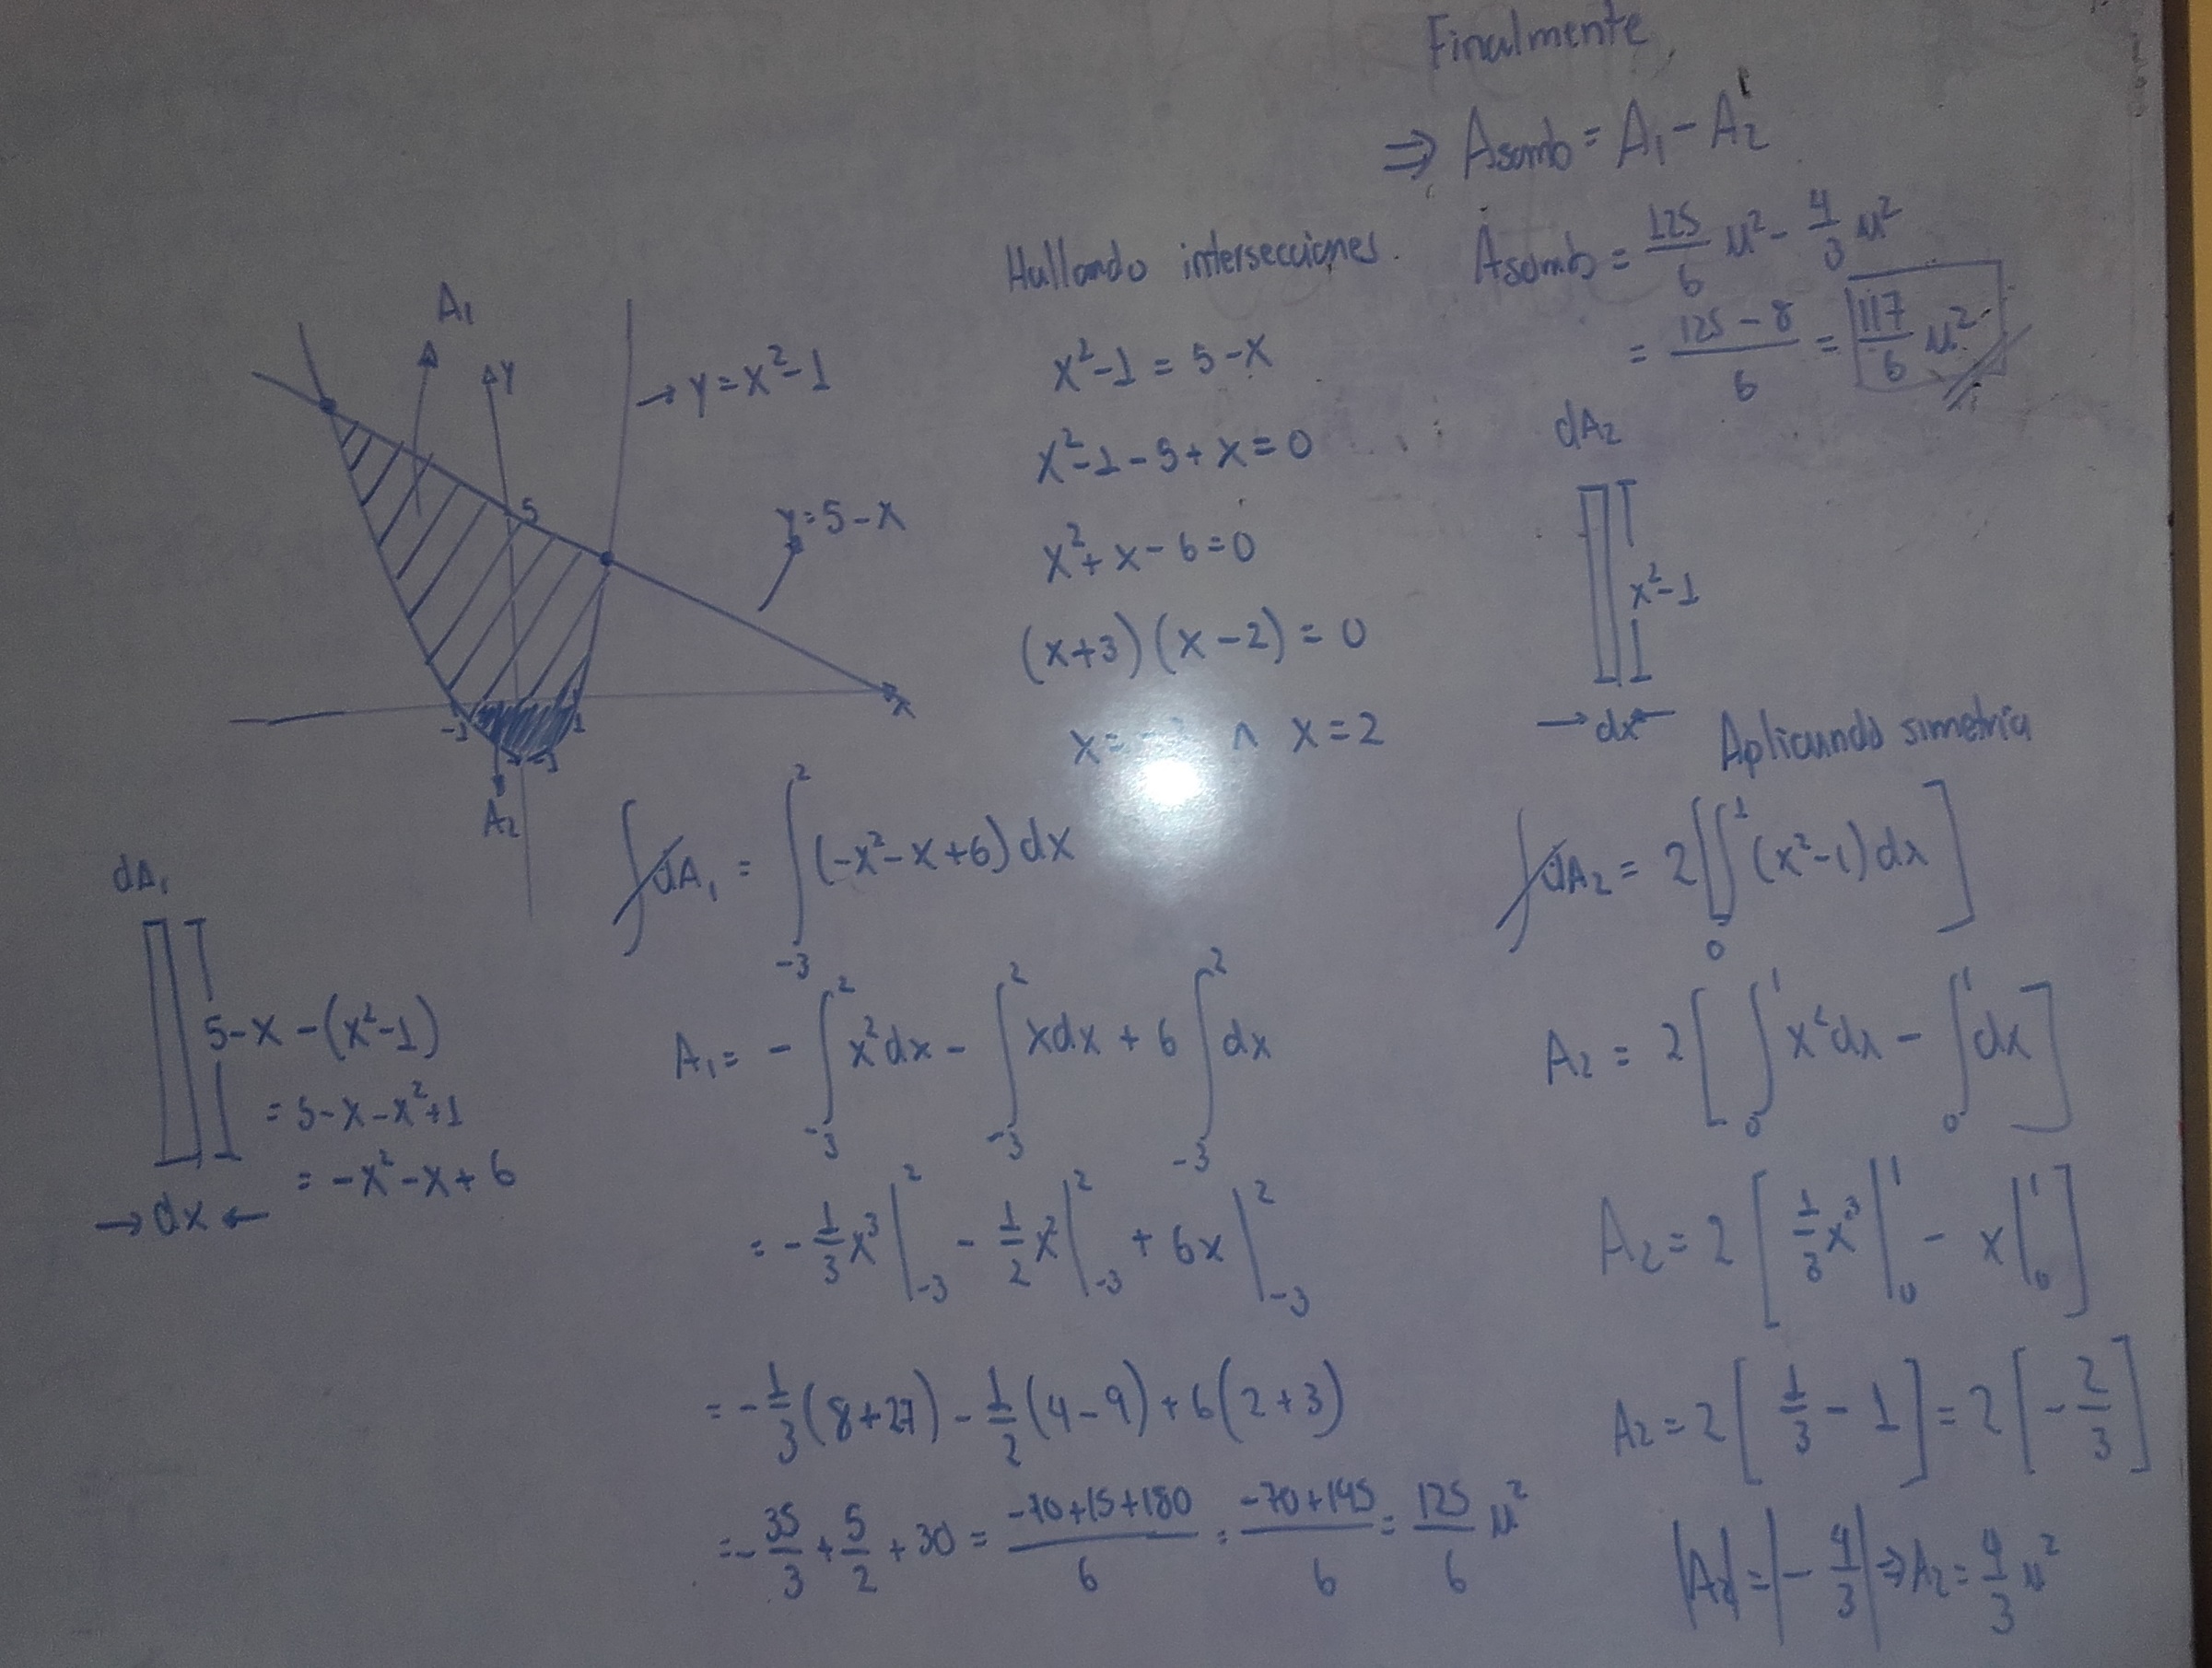 A₁
Y
→ Y = x²-1
5
Y = 5-x
-1
1
-1
x
A₂
Hallando intersecciones.
x²-1 = 5-x
x²-1-5+x=0
x²+x-6=0
(x+3)(x-2)=0
∧ x=2
dA₁
5-x-(x²-1)
= 5-x-x²+1
= -x²-x+6
→ dx ←
∫dA₁ = ∫₋₃² (-x²-x+6)dx
A₁ = -∫₋₃² x²dx - ∫₋₃² xdx + 6∫₋₃² dx
= -1/3 x³|₋₃² - 1/2 x²|₋₃² + 6x|₋₃²
= -1/3(8+27) - 1/2(4-9) + 6(2+3)
= -35/3 + 5/2 + 30 = (-70+15+180)/6 = (-70+195)/6 = 125/6 u²
Finalmente,
⇒ Asomb = A₁ - A₂
Asomb = 125/6 u² - 4/3 u²
= (125-8)/6 = 117/6 u²
dA₂
x²-1
→ dx ←
Aplicando simetría
∫dA₂ = 2[∫₀¹ (x²-1)dx]
A₂ = 2[∫₀¹ x²dx - ∫₀¹ dx]
A₂ = 2[1/3 x³|₀¹ - x|₀¹]
A₂ = 2[1/3 - 1] = 2[-2/3]
|A₂| = |-4/3| ⇒ A₂ = 4/3 u²